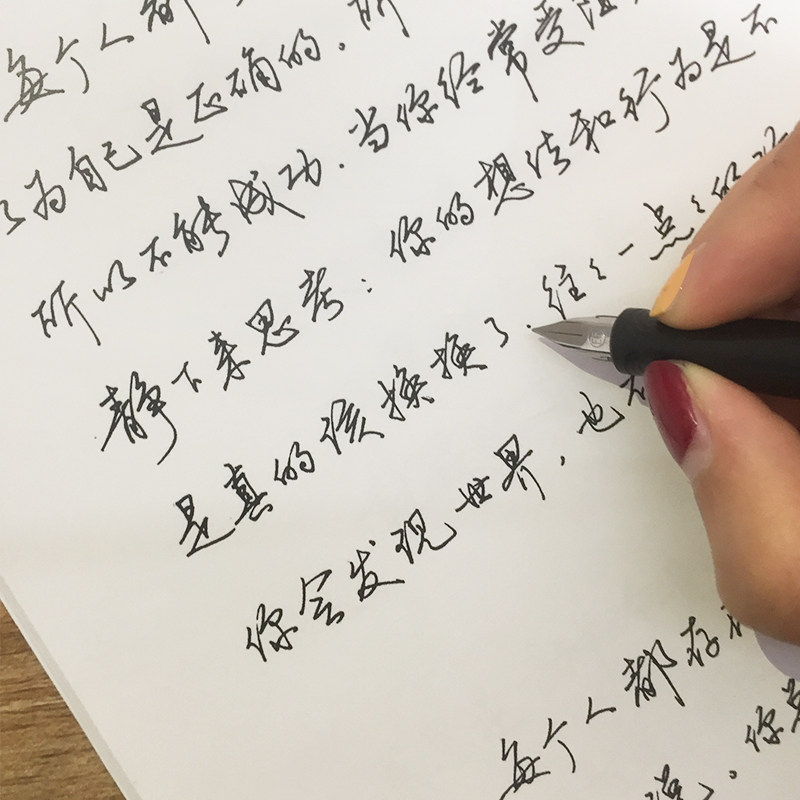 每个人都
以为自己是正确的。所
所以不能成功.当你经常受
静下来思考：你的想法和行为是不
是真的该换换了.往々一点々的改
你会发现世界，也不
每个人都存在
。你总